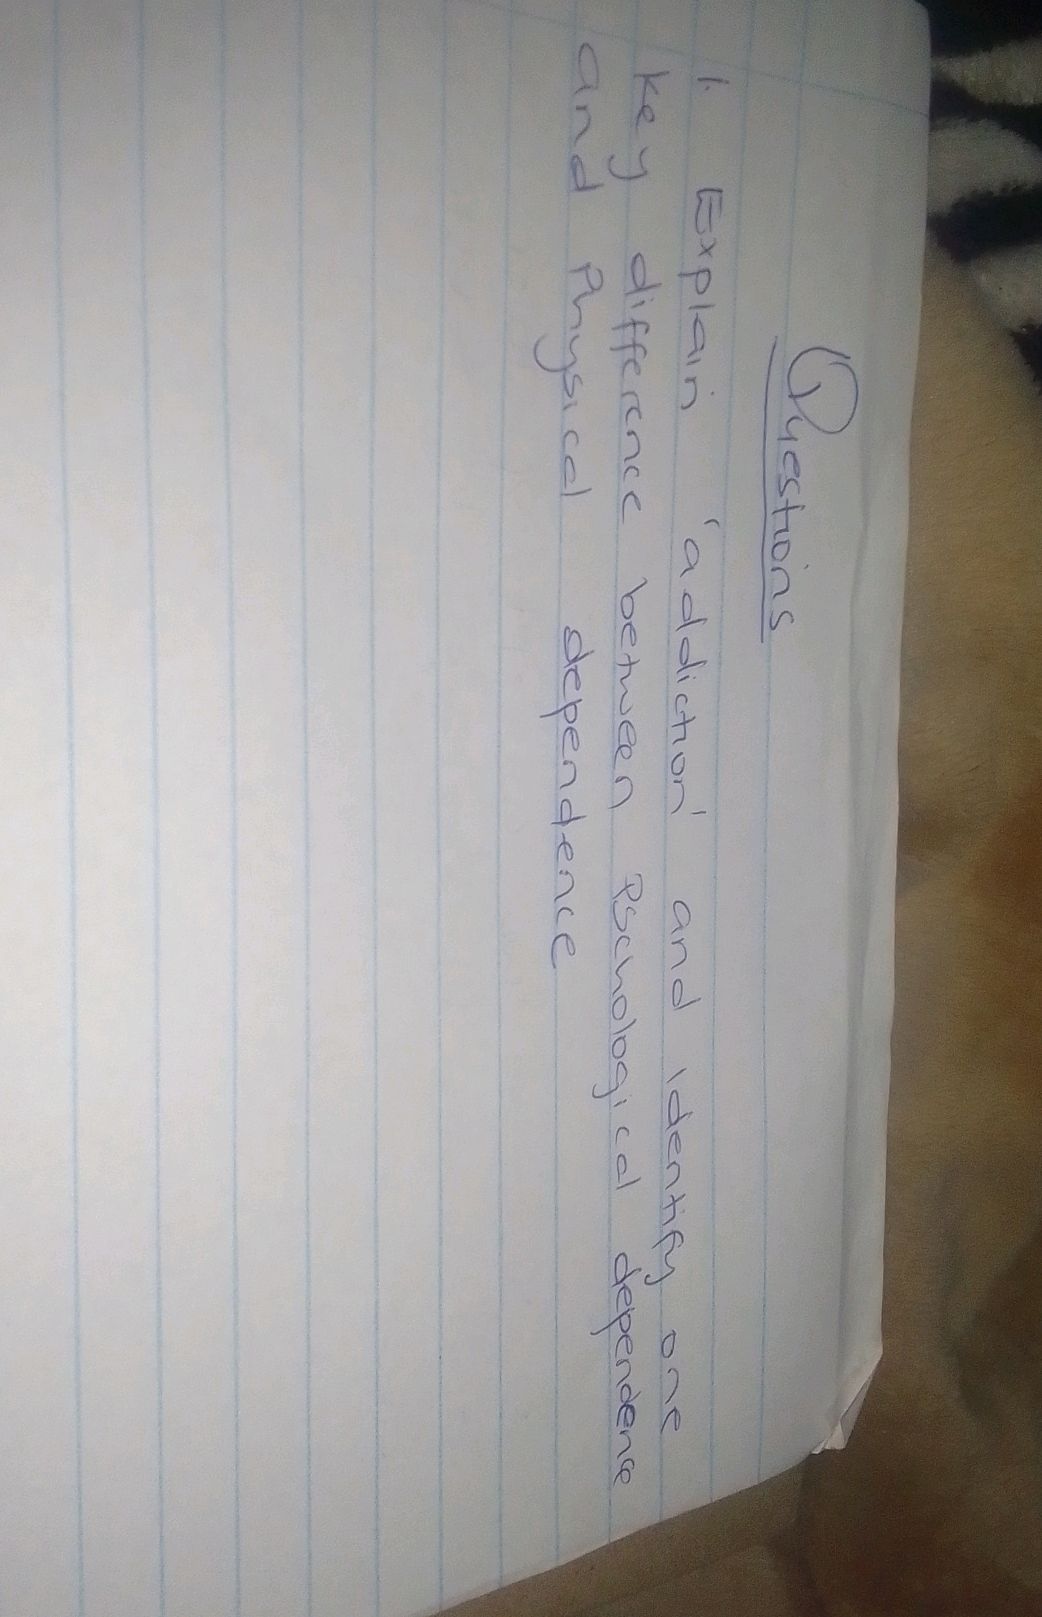 Questions
1. Explain 'addiction' and identify one
key difference between Pschological dependence
and Physical dependence